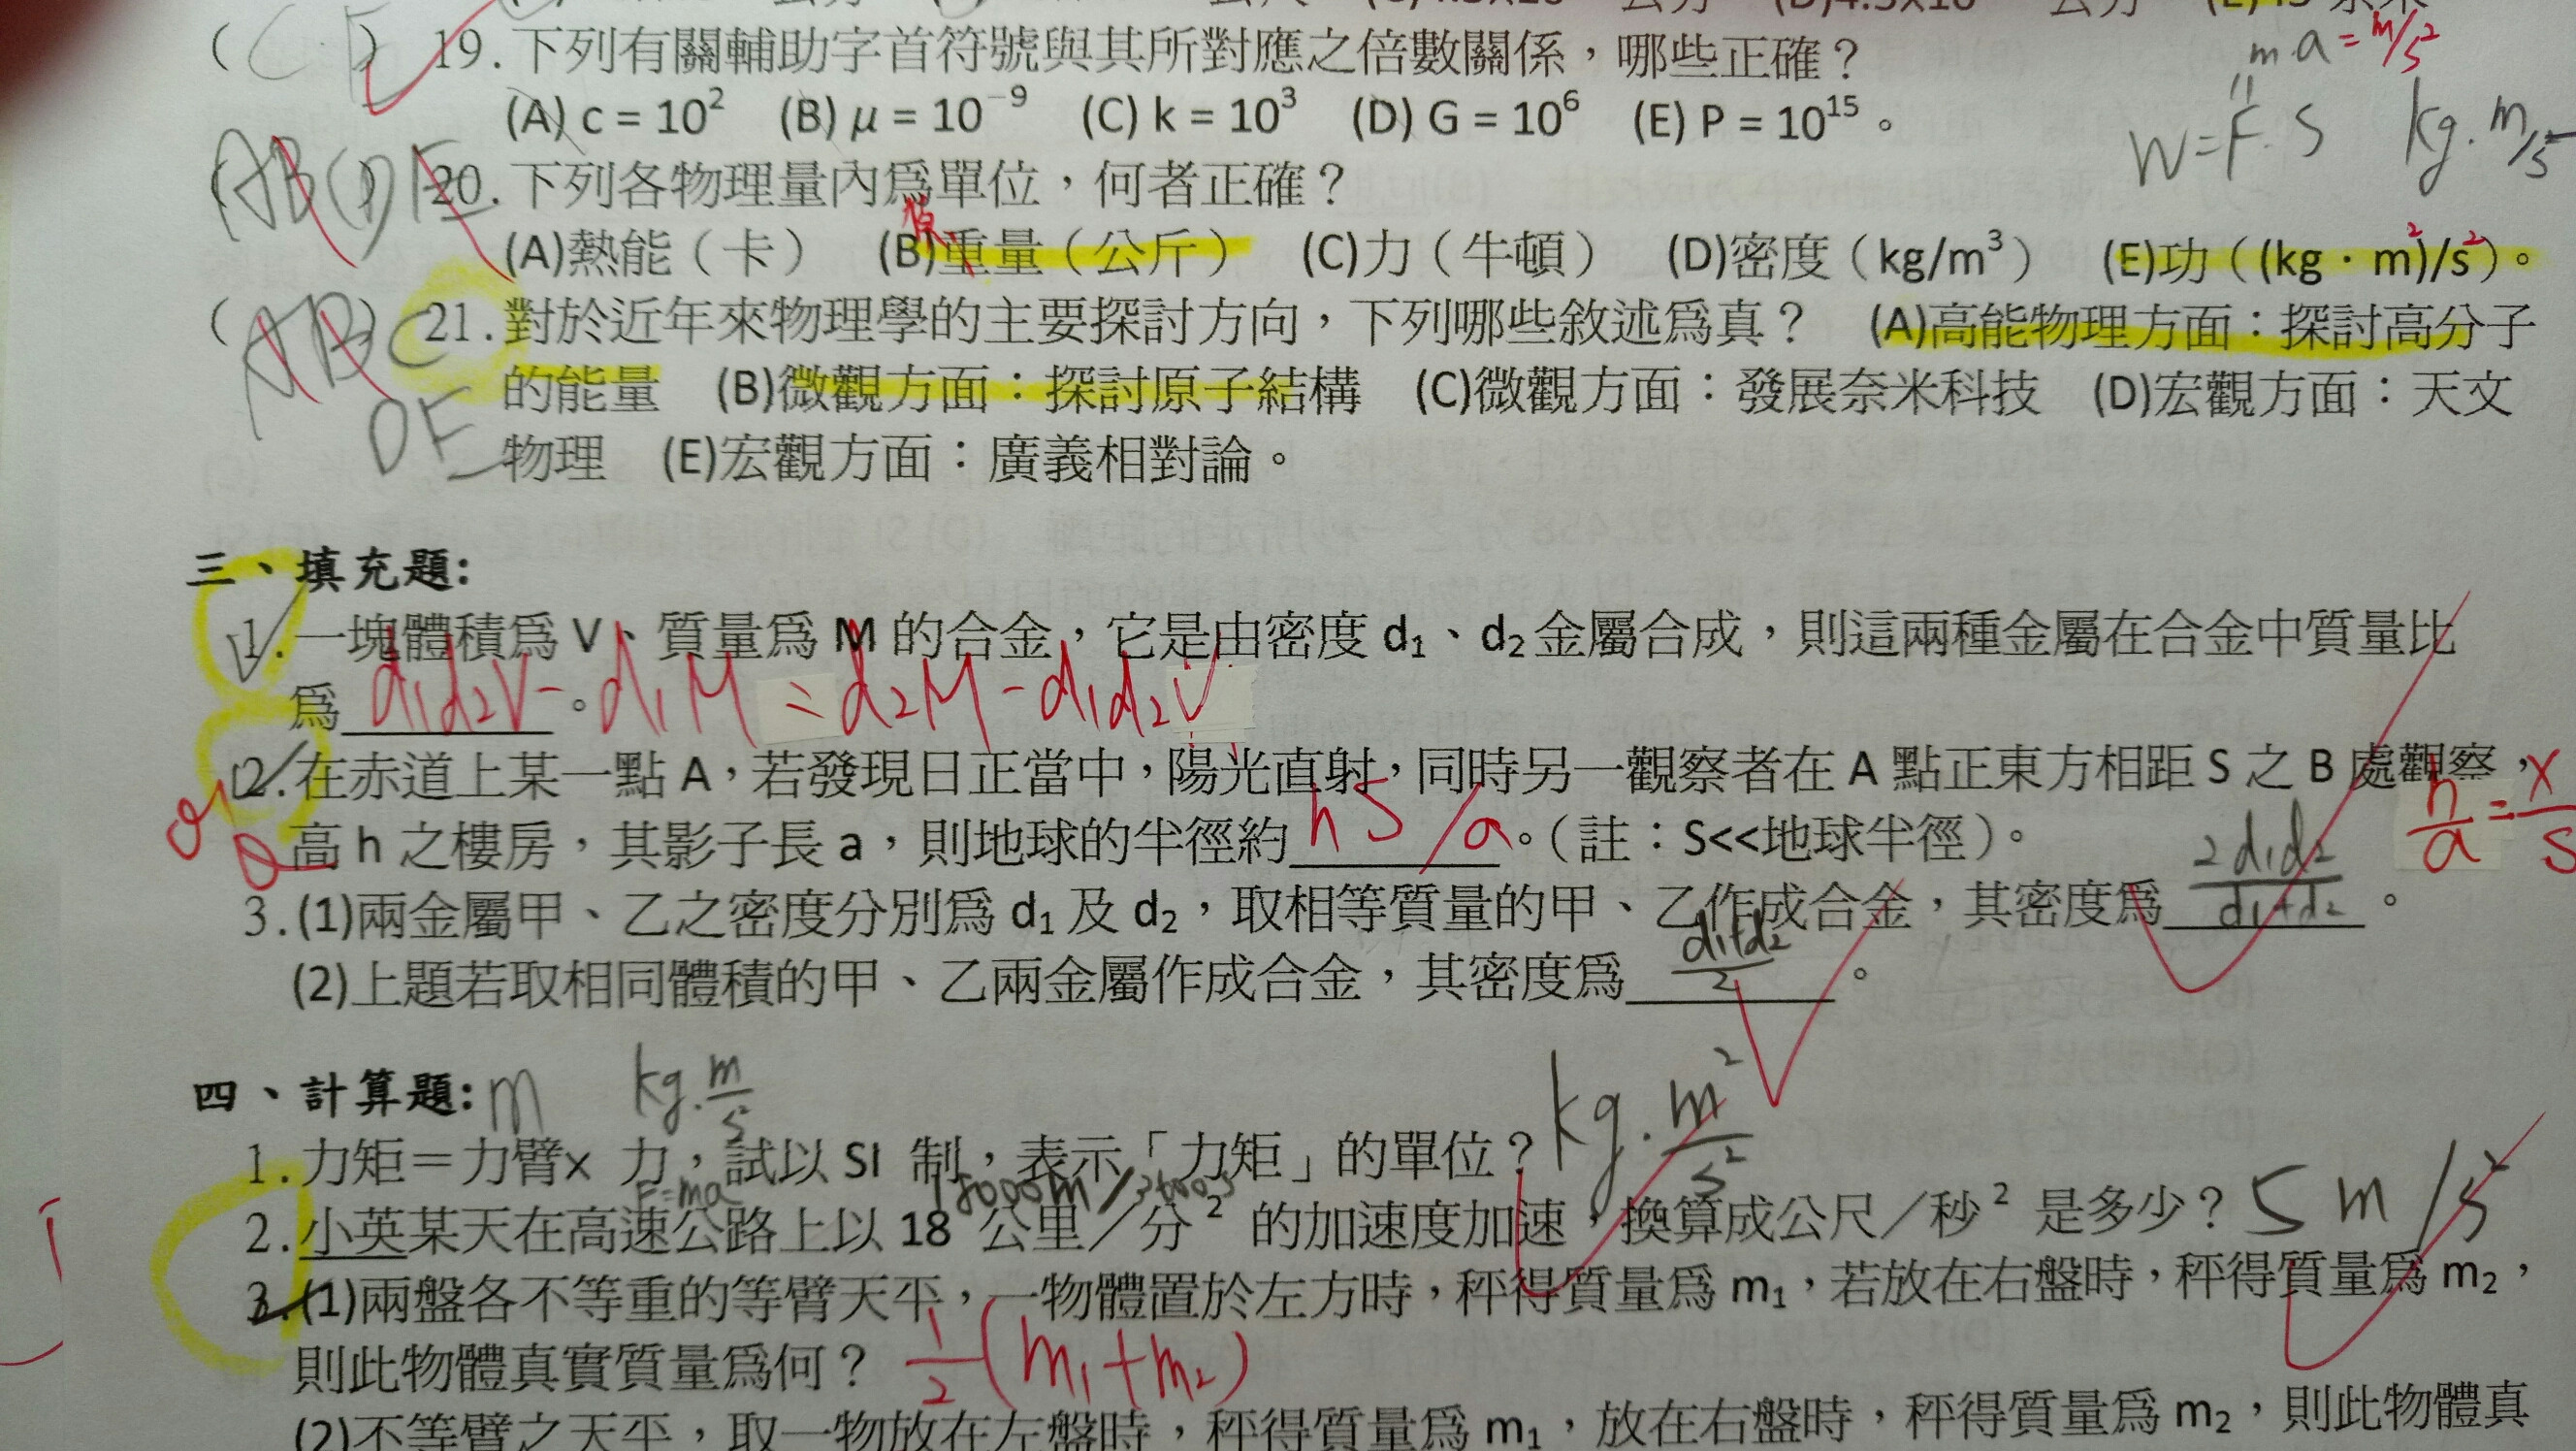 19.下列有關輔助字首符號與其所對應之倍數關係，哪些正確？
ma=m/s²
(A) c = 10² (B) μ = 10⁻⁹ (C) k = 10³ (D) G = 10⁶ (E) P = 10¹⁵。
W=F·S kg·m/s
ABCDE
20.下列各物理量內為單位，何者正確？
(A)熱能（卡） (B)重量（公斤） (C)力（牛頓） (D)密度（kg/m³） (E)功（(kg·m²)/s²）。
ABC
21.對於近年來物理學的主要探討方向，下列哪些敘述為真？ (A)高能物理方面：探討高分子
的能量 (B)微觀方面：探討原子結構 (C)微觀方面：發展奈米科技 (D)宏觀方面：天文
DE
物理 (E)宏觀方面：廣義相對論。
三、填充題:
1.一塊體積為 V、質量為 M 的合金，它是由密度 d₁、d₂ 金屬合成，則這兩種金屬在合金中質量比
為 d₁d₂V-d₁M = d₂M-d₁d₂V 。
2.在赤道上某一點 A，若發現日正當中，陽光直射，同時另一觀察者在 A 點正東方相距 S 之 B 處觀察，
高 h 之樓房，其影子長 a，則地球的半徑約 hS/a。（註：S<<地球半徑）。
h/a=x/s
3.(1)兩金屬甲、乙之密度分別為 d₁ 及 d₂，取相等質量的甲、乙作成合金，其密度為 2d₁d₂/d₁+d₂ 。
(2)上題若取相同體積的甲、乙兩金屬作成合金，其密度為 d₁+d₂/2 。
四、計算題:
m kg·m/s²
1.力矩＝力臂x 力，試以 SI 制，表示「力矩」的單位？ kg·m²/s²
F=ma 18000m/3600s
2.小英某天在高速公路上以 18 公里／分² 的加速度加速，換算成公尺／秒² 是多少？ 5 m/s²
3.(1)兩盤各不等重的等臂天平，一物體置於左方時，秤得質量為 m₁，若放在右盤時，秤得質量為 m₂，
則此物體真實質量為何？ 1/2(m₁+m₂)
(2)不等臂之天平，取一物放在左盤時，秤得質量為 m₁，放在右盤時，秤得質量為 m₂，則此物體真